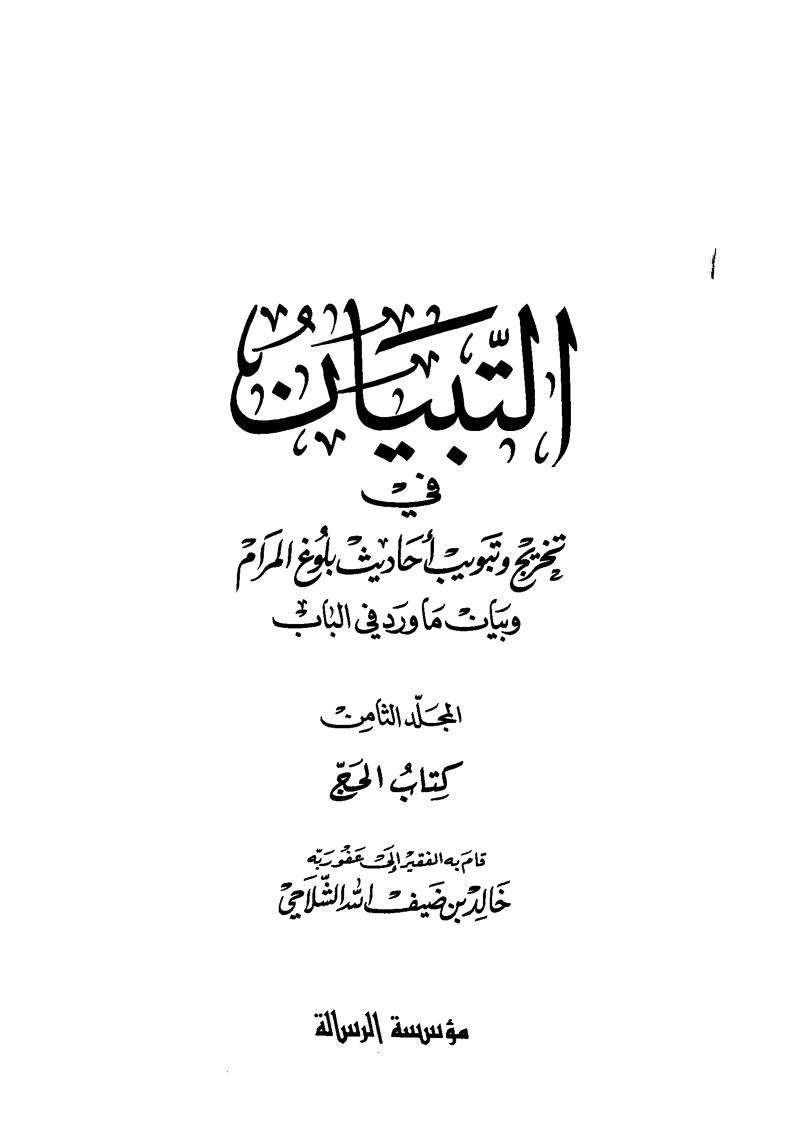 التِّبيَانُ
في
تخريج وتبويب أحَاديث بلُوغ المرَام
وبيَان مَا ورَد في البَاب
المجَلّد الثامِن
كِتابُ الحَجّ
قامَ به الفقير إلى عَفو رَبّه
خَالِد بن ضَيف الله الشَّلاَحي
مؤسسة الرسالة